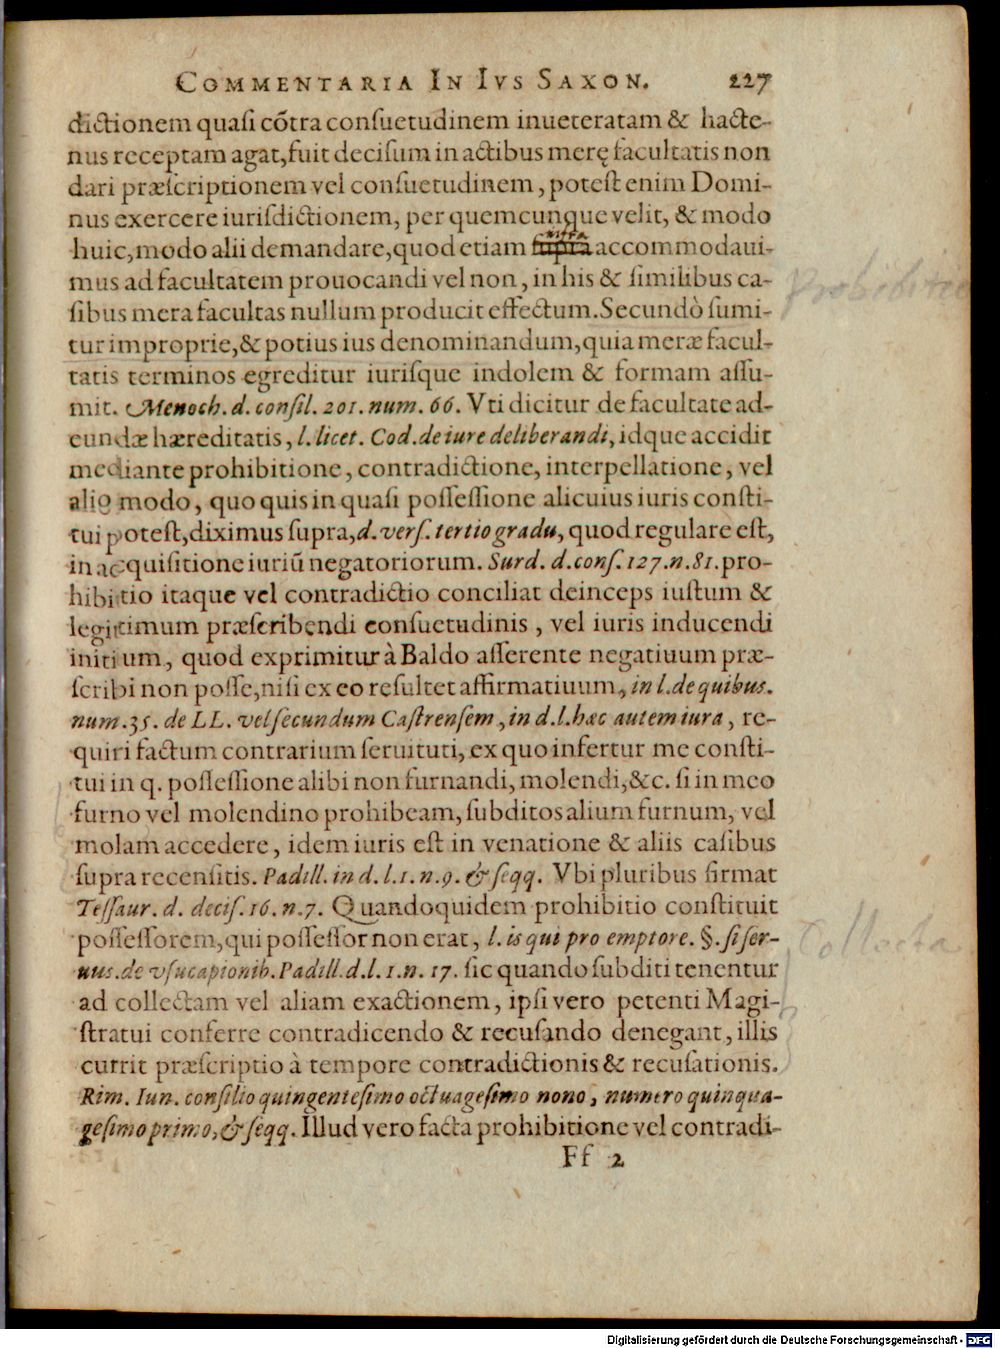 COMMENTARIA IN IVS SAXON. 227
dictionem quasi cõtra consuetudinem inueteratam & hacte-
nus receptam agat, fuit decisum in actibus merę facultatis non
dari præscriptionem vel consuetudinem, potest enim Domi-
nus exercere iurisdictionem, per quemcunque velit, & modo
infra
huic, modo alii demandare, quod etiam supra accommodaui-
mus ad facultatem prouocandi vel non, in his & similibus ca-
prohibitio
sibus mera facultas nullum producit effectum. Secundò sumi-
tur improprie, & potius ius denominandum, quia meræ facul-
tatis terminos egreditur iurisque indolem & formam assu-
mit. Menoch. d. consil. 201. num. 66. Vti dicitur de facultate ad-
eundæ hæreditatis, l. licet. Cod. de iure deliberandi, idque accidit
mediante prohibitione, contradictione, interpellatione, vel
alio modo, quo quis in quasi possessione alicuius iuris consti-
tui potest, diximus supra, d. vers. tertio gradu, quod regulare est,
in acquisitione iuriũ negatoriorum. Surd. d. cons. 127. n. 81. pro-
hibitio itaque vel contradictio conciliat deinceps iustum &
legitimum præscribendi consuetudinis, vel iuris inducendi
initium, quod exprimitur à Baldo asserente negatiuum præ-
scribi non posse, nisi ex eo resultet affirmatiuum, in l. de quibus.
num. 35. de LL. vel secundum Castrensem, in d. l. hæc autem iura, re-
quiri factum contrarium seruituti, ex quo infertur me consti-
tui in q. possessione alibi non furnandi, molendi, &c. si in meo
furno vel molendino prohibeam, subditos alium furnum, vel
molam accedere, idem iuris est in venatione & aliis casibus
supra recensitis. Padill. in d. l. 1. n. 9. & seqq. Vbi pluribus firmat
Tessaur. d. decis. 16. n. 7. Quandoquidem prohibitio constituit
possessorem, qui possessor non erat, l. is qui pro emptore. §. si ser-
Collecta
uus. de vsucapionib. Padill. d. l. 1. n. 17. sic quando subditi tenentur
ad collectam vel aliam exactionem, ipsi vero petenti Magi-
stratui conferre contradicendo & recusando denegant, illis
currit præscriptio à tempore contradictionis & recusationis.
Rim. Iun. consilio quingentesimo octuagesimo nono, numero quinqua-
gesimo primo, & seqq. Illud vero facta prohibitione vel contradi-
Ff 2
Digitalisierung gefördert durch die Deutsche Forschungsgemeinschaft - DFG